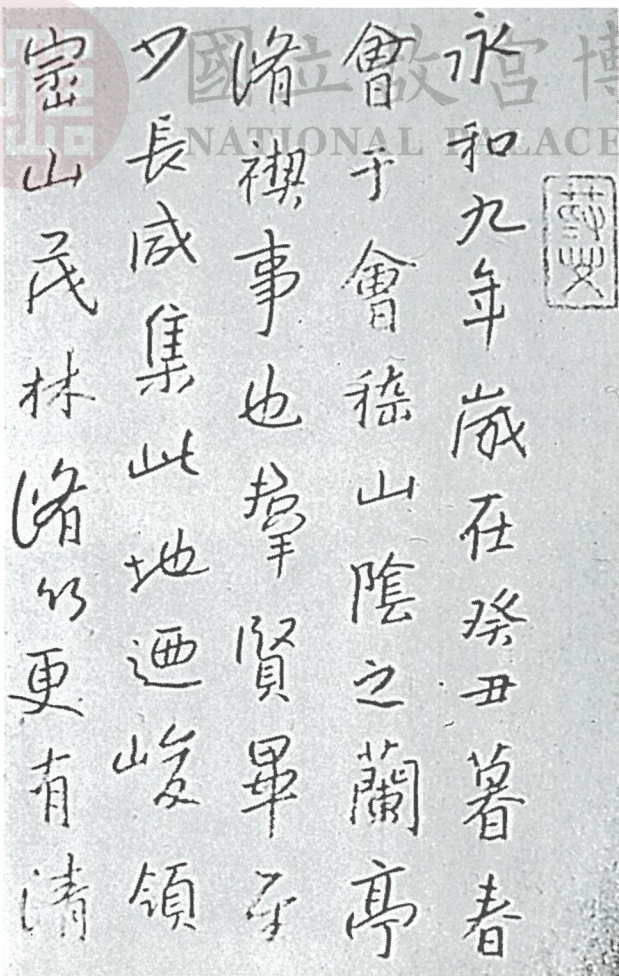 國立故宮博
NATIONAL PALACE
永和九年歲在癸丑暮春
會于會稽山陰之蘭亭
脩禊事也羣賢畢至
少長咸集此地迺峻領
崇山茂林脩竹更有清